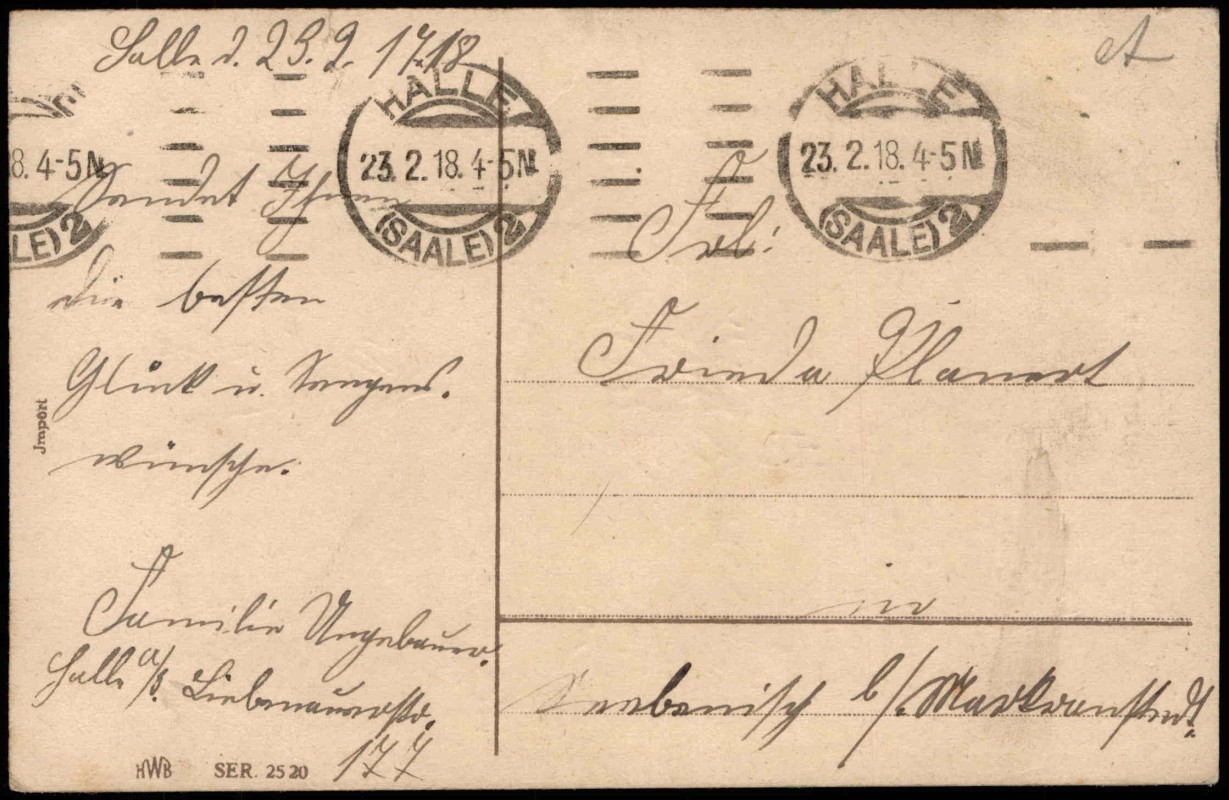 Halle d. 23. 2. 1918
HALLE
23. 2. 18. 4-5 N
(SAALE) 2
HALLE
23. 2. 18. 4-5 N
(SAALE) 2
8. 4-5 N
ALE) 2
Sendet Ihnen
die besten
Glück u. Segens.
wünsche.
Familie Ungebauer.
Halle a/S. Liebenauerstr.
177
Jmport
HWB SER. 2520
Frl:
Frieda Planert
in
Seebenisch b/. Markranstedt.